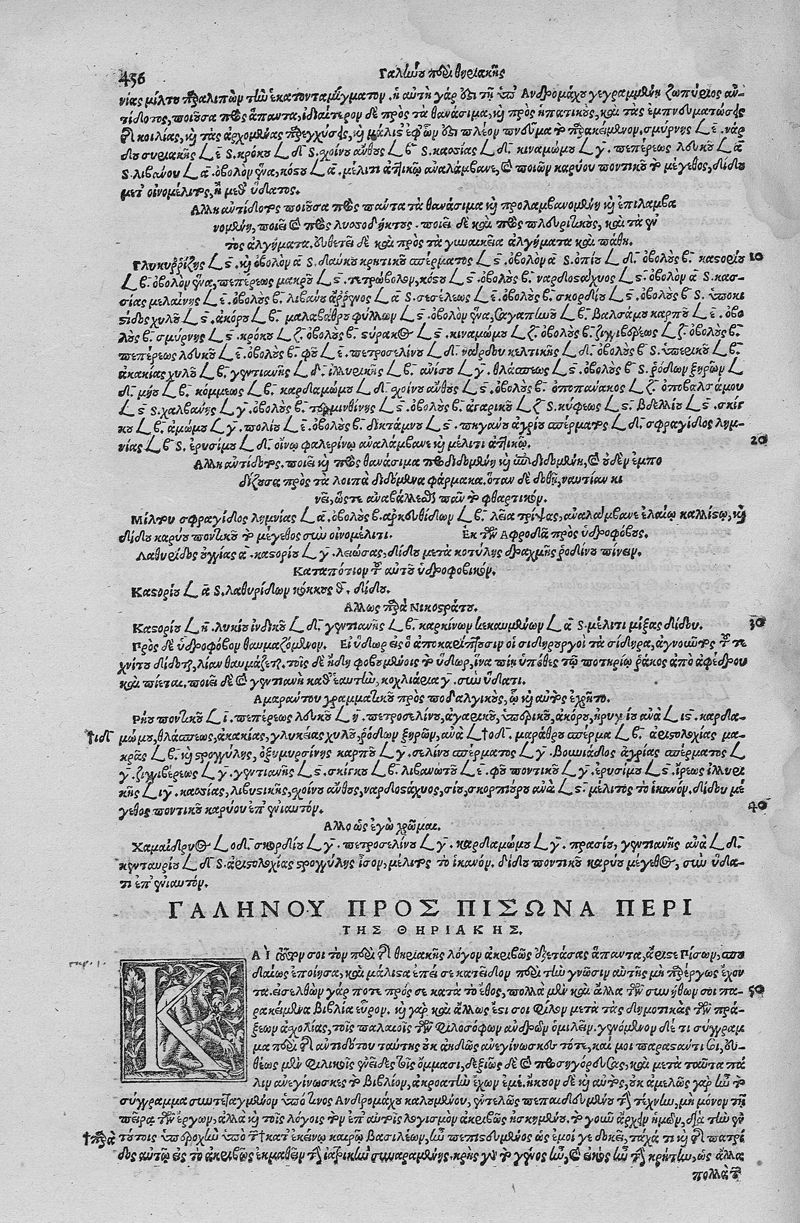 456
Γαληνοῦ περὶ θηριακῆς
νίας μίλτου παραλιπὼν τὴν ἑκατονταμίγματον. ἡ αὐτὴ γάρ ἐστι τῇ ὑπ' Ἀνδρομάχου γεγραμμένῃ ζωπύριος ἀν-
τίδοτος, ποιοῦσα πρὸς ἅπαντα, ἰδιαίτερον δὲ πρὸς τὰ θανάσιμα, καὶ πρὸς ἡπατικοὺς, καὶ τὰς ἐμπνευματώσεις
τῆς κοιλίας, καὶ τὰς ἀρχομένας παρεγχύσεις, καὶ μάλιστα ἐφ' ὧν ἐστι πλέον πνεῦμα τὸ παρακείμενον. σμύρνης 𐅻 ε. νάρ
δου συριακῆς 𐅻 ε S. κρόκου 𐅻 δ S. σχοίνου ἄνθους 𐅻 β S. κασσίας 𐅻 δ. κιναμώμου 𐅻 γ. πεπέρεως λευκοῦ 𐅻 α
S. λιβάνου 𐅻 α. ὀβολὸν ἕνα, κόστου 𐅻 α. μέλιτι ἀττικῷ ἀναλάμβανε, καὶ ποιῶν καρύου ποντικοῦ τὸ μέγεθος, δίδου
μετ' οἰνομέλιτος, ἢ μεθ' ὕδατος.
Ἄλλη ἀντίδοτος ποιοῦσα πρὸς πάντα τὰ θανάσιμα καὶ προλαμβανομένη καὶ ἐπιλαμβα
νομένη, ποιεῖ καὶ πρὸς λυσσοδήκτους. ποιεῖ δὲ καὶ πρὸς πλευριτικοὺς, καὶ τὰ ἐν
τὸς ἀλγήματα. δὲ καὶ πρὸς τὰ γυναικεῖα ἀλγήματα καὶ πάθη.
Γλυκυῤῥίζης 𐅻 ς. καὶ ὀβολὸν α S. δαύκου κρητικοῦ σπέρματος 𐅻 ς. ὀβολὸν α S. ὀπίου 𐅻 δ. ὀβολοὺς β. καστορίου 10
𐅻 β. ὀβολὸν ἕνα, πεπέρεως μακροῦ 𐅻 ς. τετρώβολον, κόστου 𐅻 ς. ὀβολοὺς β. ναρδοστάχυος 𐅻 ς. ὀβολὸν α S. κασ-
σίας μελαίνης 𐅻 ε. ὀβολοὺς β. λιβάνου ἄῤῥενος 𐅻 α S. σεσέλεως 𐅻 ε. ὀβολοὺς β. σκορδίου 𐅻 ς. ὀβολοὺς β S. ὑποκι
στίδος χυλοῦ 𐅻 ς. ἀκόρου 𐅻 β. μαλαβάθρου φύλλων 𐅻 ς. ὀβολὸν ἕνα, σαγαπηνοῦ 𐅻 β. βαλσάμου καρποῦ 𐅻 ε. ὀβο
λοὺς β. σμύρνης 𐅻 ς. κρόκου 𐅻 ζ. ὀβολοὺς β. στύρακος 𐅻 ς. κιναμώμου 𐅻 ζ. ὀβολοὺς β. ζιγγιβέρεως 𐅻 ζ. ὀβολοὺς β.
πεπέρεως λευκοῦ 𐅻 ε. ὀβολοὺς β. φοῦ 𐅻 ε. πετροσελίνου 𐅻 δ. νάρδου κελτικῆς 𐅻 δ. ὀβολοὺς β S. ὑπερικοῦ 𐅻 β.
ἀκακίας χυλοῦ 𐅻 β. γεντιανῆς 𐅻 δ. ἰλλυρικῆς 𐅻 β. ἀνίσου 𐅻 γ. θλάσπεως 𐅻 ς. ὀβολοὺς β S. ῥόδων ξηρῶν 𐅻
δ. μήου 𐅻 β. κόμμεως 𐅻 β. καρδαμώμου 𐅻 δ. σχοίνου ἄνθους 𐅻 ς. ὀβολοὺς β. ὀποπάνακος 𐅻 ζ. ὀποβαλσάμου
𐅻 ς S. χαλβάνης 𐅻 γ. ὀβολοὺς β. τερμινθίνης 𐅻 ς. ὀβολοὺς β. ἀγαρικοῦ 𐅻 ζ S. κύφεως 𐅻 ς. βδελλίου 𐅻 ς. σκίγ
κου 𐅻 β. ἀμώμου 𐅻 γ. πολίου 𐅻 ε. ὀβολοὺς β. δικτάμνου 𐅻 ς. πηγάνου ἀγρίου σπέρματος 𐅻 δ. σφραγίδος λημ-
νίας 𐅻 β S. ἐρυσίμου 𐅻 δ. οἴνῳ φαλερίνῳ ἀναλάμβανε καὶ μέλιτι ἀττικῷ. 20
Ἄλλη ἀντίδοτος. ποιεῖ καὶ πρὸς θανάσιμα προδιδομένη καὶ ἐπιδιδομένη, καὶ οὐδὲν ἐμπο
δίζουσα πρὸς τὰ λοιπὰ διδόμενα φάρμακα. ὅταν δὲ δοθῇ, ναυτίαν κι
νεῖ, ὥστε ἀναβάλλεσθαι πᾶν τὸ φθαρτικόν.
Μίλτου σφραγίδος λημνίας 𐅻 α. ὀβολοὺς β. ἀρκευθίδων 𐅻 β. λεῖα τρίψας, ἀναλάμβανε ἐλαίῳ καλλίστῳ, καὶ
δίδου καρύου ποντικοῦ τὸ μέγεθος σὺν οἰνομέλιτι. Ἐκ τῶν Ἀφροδᾶ πρὸς ὑδροφόβους.
Λαθυρίδος οὐγγίας α. καστορίου 𐅻 γ. λειώσας, δίδου μετὰ κοτύλης δραχμῆς ῥοδίνου πίνειν.
Καταπότιον τοῦ αὐτοῦ ὑδροφοβικόν.
Καστορίου 𐅻 α S. λαθυρίδων κόκκους θ. δίδου.
Ἄλλως παρὰ Νικοστράτου.
Καστορίου 𐅻 η. λυκίου ἰνδικοῦ 𐅻 δ. γεντιανῆς 𐅻 β. καρκίνων κεκαυμένων 𐅻 α S. μέλιτι μίξας δίδου. 30
Πρὸς δὲ ὑδροφόβων θαυμαζόμενον. Εἰ ὕδωρ εἰς ὃ ἀποκαθίζουσιν οἱ σιδηρουργοὶ τὰ σίδηρα, ἀγνοοῦντος τοῦ τε
χνίτου δίδοται, λίαν θαυμάζεται. τοῖς δὲ ἤδη φοβουμένοις τὸ ὕδωρ, ἵνα πίῃ ὑπόθες τῷ ποτηρίῳ ῥάκος ἀπὸ ἀφέδρου
καὶ πίεται. ποιεῖ δὲ καὶ γεντιανὴ καθ' ἑαυτὴν, κοχλιάρια γ. σὺν ὕδατι.
Ἀμαράντου γραμματικοῦ πρὸς ποδαλγικοὺς, ᾧ καὶ αὐτὸς ἐχρῆτο.
Ῥήου ποντικοῦ 𐅻 ι. πεπέρεως λευκοῦ 𐅻 η. πετροσελίνου, ἀγαρικοῦ, ὑπερικοῦ, ἀκόρου, ἀνὰ 𐅻 ις. καρδα-
†ιδ. μώμου, θλάσπεως, ἀκακίας, γλυκείας χυλοῦ, ῥόδων ξηρῶν, ἀνὰ 𐅻 †οδ. μαράθρου σπέρμα 𐅻 β. ἀριστολοχίας μα-
κρᾶς 𐅻 β. καὶ στρογγύλης, ὀξυμυρσίνης καρποῦ 𐅻 γ. σελίνου σπέρματος 𐅻 γ. βουνιάδος ἀγρίας σπέρματος 𐅻
γ. ζιγγιβέρεως 𐅻 γ. γεντιανῆς 𐅻 ς. σκίγκου 𐅻 β. λιβανωτοῦ 𐅻 ε. φοῦ ποντικοῦ 𐅻 γ. ἐρυσίμου 𐅻 ς. ἴρεως ἰλλυρι
κῆς 𐅻 ιγ. κασσίας, λιβυστικῆς, σχοίνου ἄνθους, ναρδοστάχυος, σίου, ἀνὰ 𐅻 ς. μέλιτος τὸ ἱκανόν. δίδου μέ
γεθος ποντικοῦ καρύου ἐπ' ἐνιαυτόν. 40
Ἄλλο ὡς ἐγὼ χρῶμαι.
Χαμαίδρυος 𐅻 οδ. σκορδίου 𐅻 γ. πετροσελίνου 𐅻 γ. καρδαμώμου 𐅻 γ. πρασίου, γεντιανῆς ἀνὰ 𐅻 δ.
κενταυρίου 𐅻 δ S. ἀριστολοχίας στρογγύλης ἴσον, μέλιτος τὸ ἱκανόν. δίδου ποντικοῦ καρύου μέγεθος, σὺν ὕδα-
τι ἐπ' ἐνιαυτόν.
ΓΑΛΗΝΟΥ ΠΡΟΣ ΠΙΣΩΝΑ ΠΕΡΙ
ΤΗΣ ΘΗΡΙΑΚΗΣ.
ΚΑΙ τοῦτόν σοι τὸν περὶ τῆς θηριακῆς λόγον ἀκριβῶς ἐξετάσας ἅπαντα, ἄριστε Πίσων, σπου
δαίως ἐποίησα, καὶ μάλιστα ἐπεί σε κατεῖδον περὶ τὴν γνῶσιν αὐτῆς μὴ παρέργως ἔχον
τα. εἰσελθὼν γάρ ποτε πρός σε κατὰ τὸ ἔθος, πολλὰ μὲν καὶ ἄλλα τῶν συνήθων σοι πα- 50
ρακείμενα βιβλία εὗρον. καὶ γὰρ καὶ ἄλλως ἐστί σοι φίλον μετὰ τὰς δημοτικὰς τῶν πρά-
ξεων ἀσχολίας, τοῖς παλαιοῖς τῶν φιλοσόφων ἀνδρῶν ὁμιλεῖν. γενόμενον δέ τι σύγγραμ
μα περὶ τῆς ἀντιδότου ταύτης οὐκ ἀηδῶς ἀνεγίνωσκον τότε, καί μοι παραστάντι σοι, εὐ-
θέως μὲν φιλικοῖς ἐνεῖδες τοῖς ὄμμασι, δεξιῶς δὲ καὶ προσηγόρευσας, καὶ μετὰ ταῦτα πά
λιν ἀνεγίνωσκες τὸ βιβλίον, ἀκροατὴν ἔχων ἐμέ. ἤκουον δὲ καὶ αὐτὸς, οὐκ ἀμελῶς γὰρ ἦν τὸ
σύγγραμμα συντεταγμένον ὑπό τινος Ἀνδρομάχου καλουμένου, ἐντελῶς πεπαιδευμένου τὴν τέχνην, μὴ μόνον τῇ
πείρᾳ τῶν ἔργων, ἀλλὰ καὶ τοῖς λόγοις τὸν ἐπ' αὐτοῖς λογισμὸν ἀκριβῶς ἠσκημένου. τὸ γοῦν ἄρχειν ἡμῶν, διὰ τὴν ἐν
†παρὰ τούτοις ὑπεροχὴν ὑπὸ τῶν †κατ' ἐκεῖνο καιροῦ βασιλέων, ἦν πεπιστευμένος ὡς ἐμοί γε δοκεῖ, τάχα τι καὶ τῆς πατρί
δος αὐτῷ εἰς τὸ ἀκριβῶς ἐκμαθεῖν τὴν ἰατρικὴν συναραμένης. κρὴς γὰρ τὸ γένος ἦν, καὶ εἰκὸς ἦν τὴν κρήτην, ὡς ἄλλα
πολλὰ τῶν